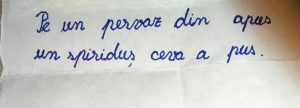 Pe un pervaz din apus
un spiriduș ceva a pus.